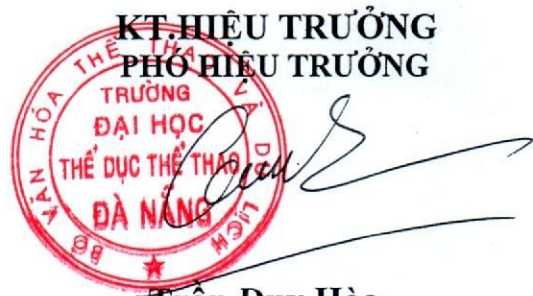 KT.HIỆU TRƯỞNG
PHÓ HIỆU TRƯỞNG
BỘ VĂN HÓA THỂ THAO VÀ DU LỊCH
TRƯỜNG
ĐẠI HỌC
THỂ DỤC THỂ THAO
ĐÀ NẴNG
Trần Duy Hòa